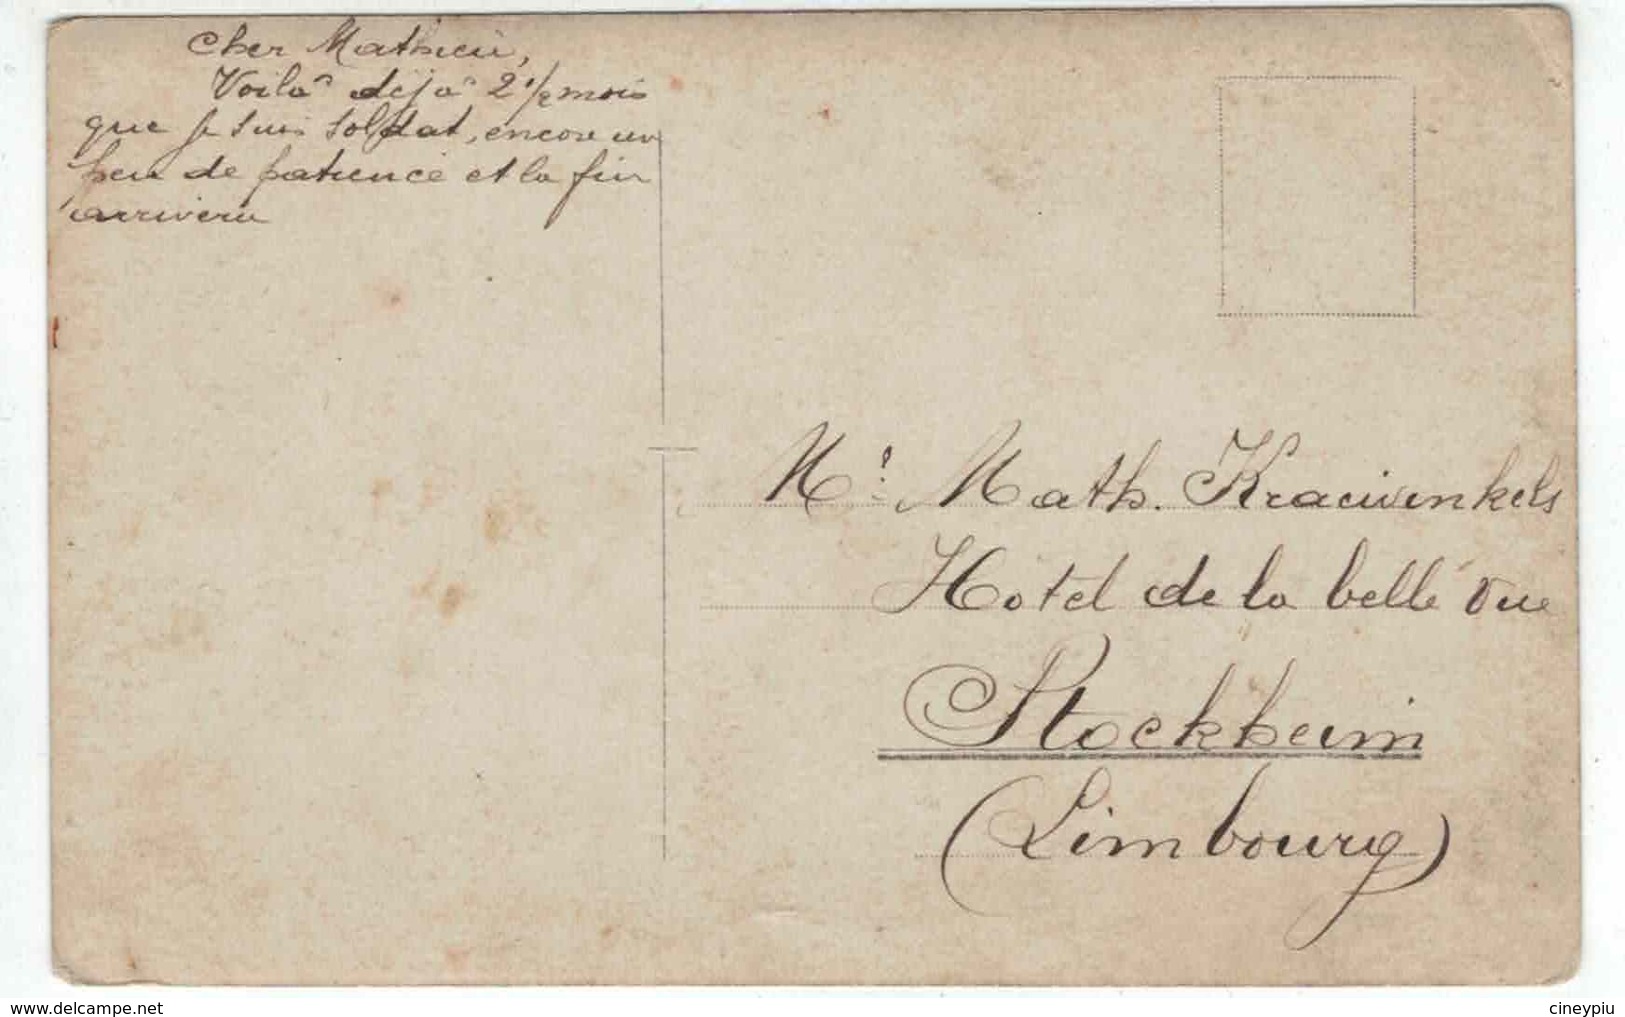 Cher Mathieu,
Voilà déjà 2 1/2 mois
que je suis soldat, encore un
peu de patience et la fin
arrivera
Mr. Math. Kraewinkels
Hotel de la belle vue
Stockheim
(Limbourg)
www.delcampe.net
cineypiu